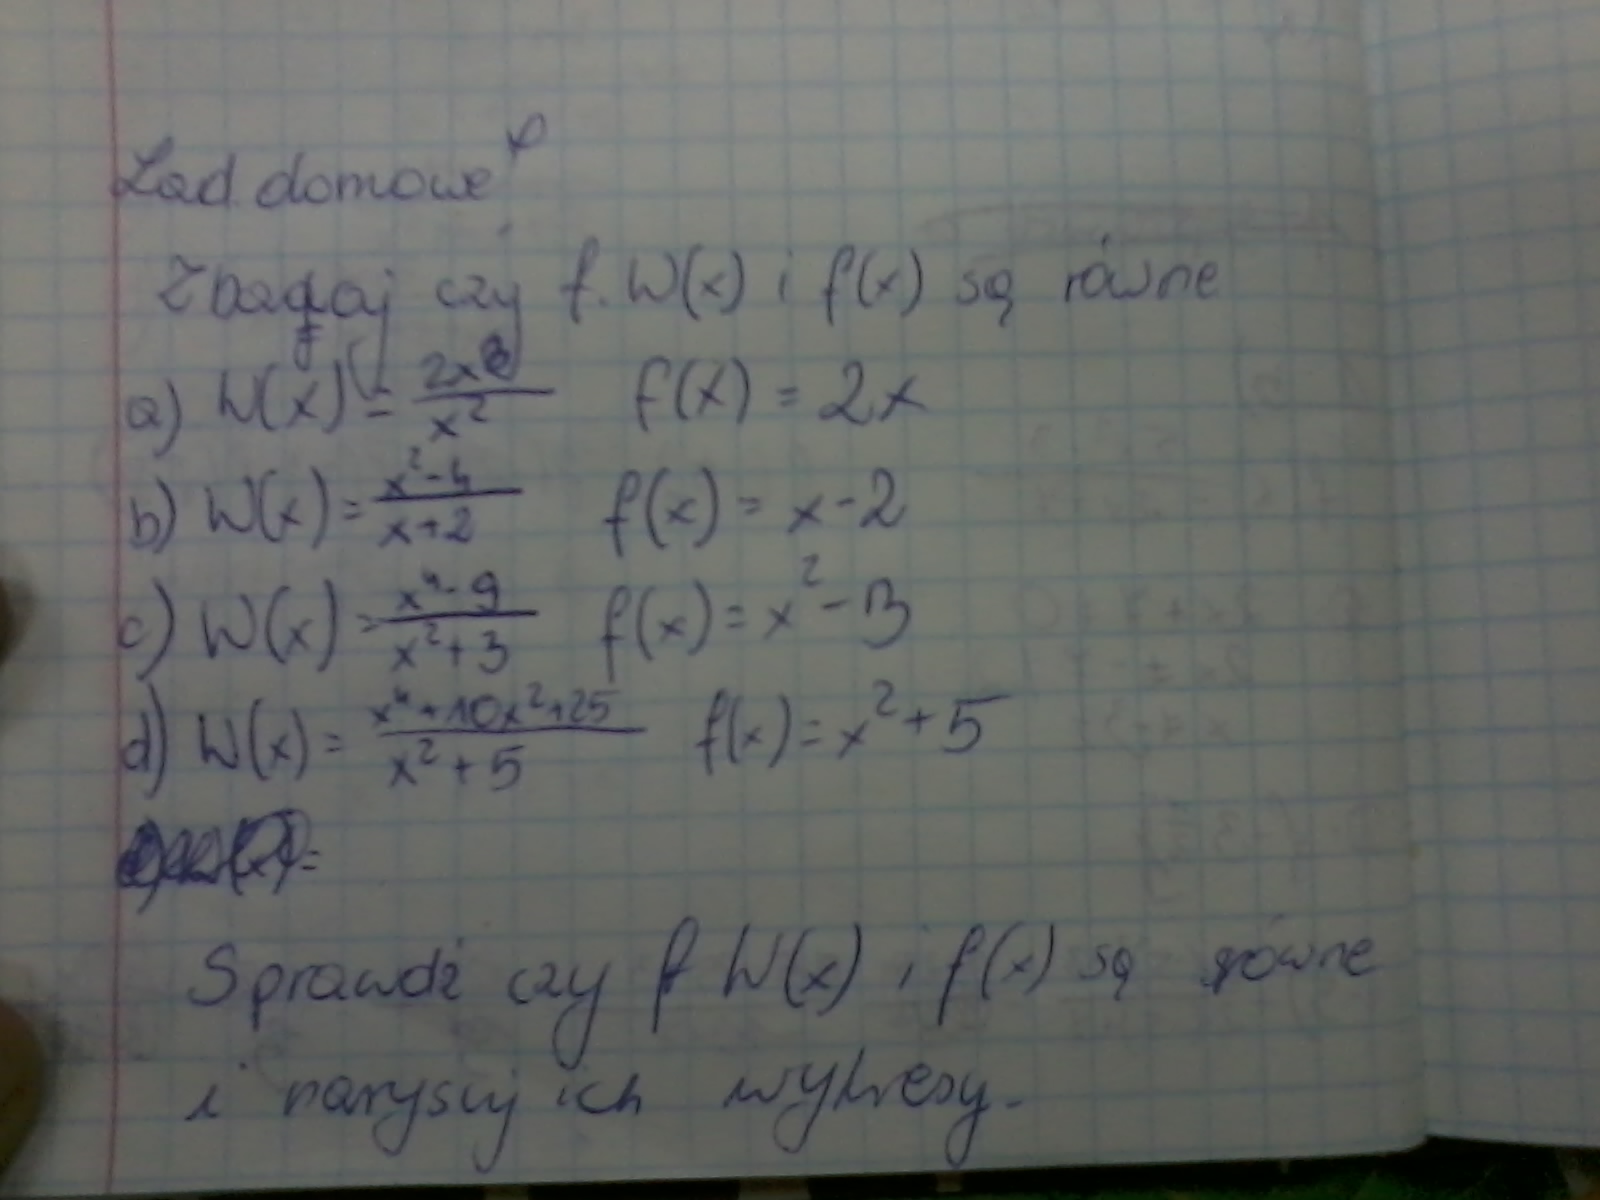 Zad. domowe
Zbadaj czy f. W(x) i f(x) są równe
a) W(x) = 2x³/x² f(x) = 2x
b) W(x) = x²-4/x+2 f(x) = x-2
c) W(x) = x⁴-9/x²+3 f(x) = x²-3
d) W(x) = x⁴+10x²+25/x²+5 f(x) = x²+5
Sprawdź czy f W(x) i f(x) są równe
i narysuj ich wykresy.